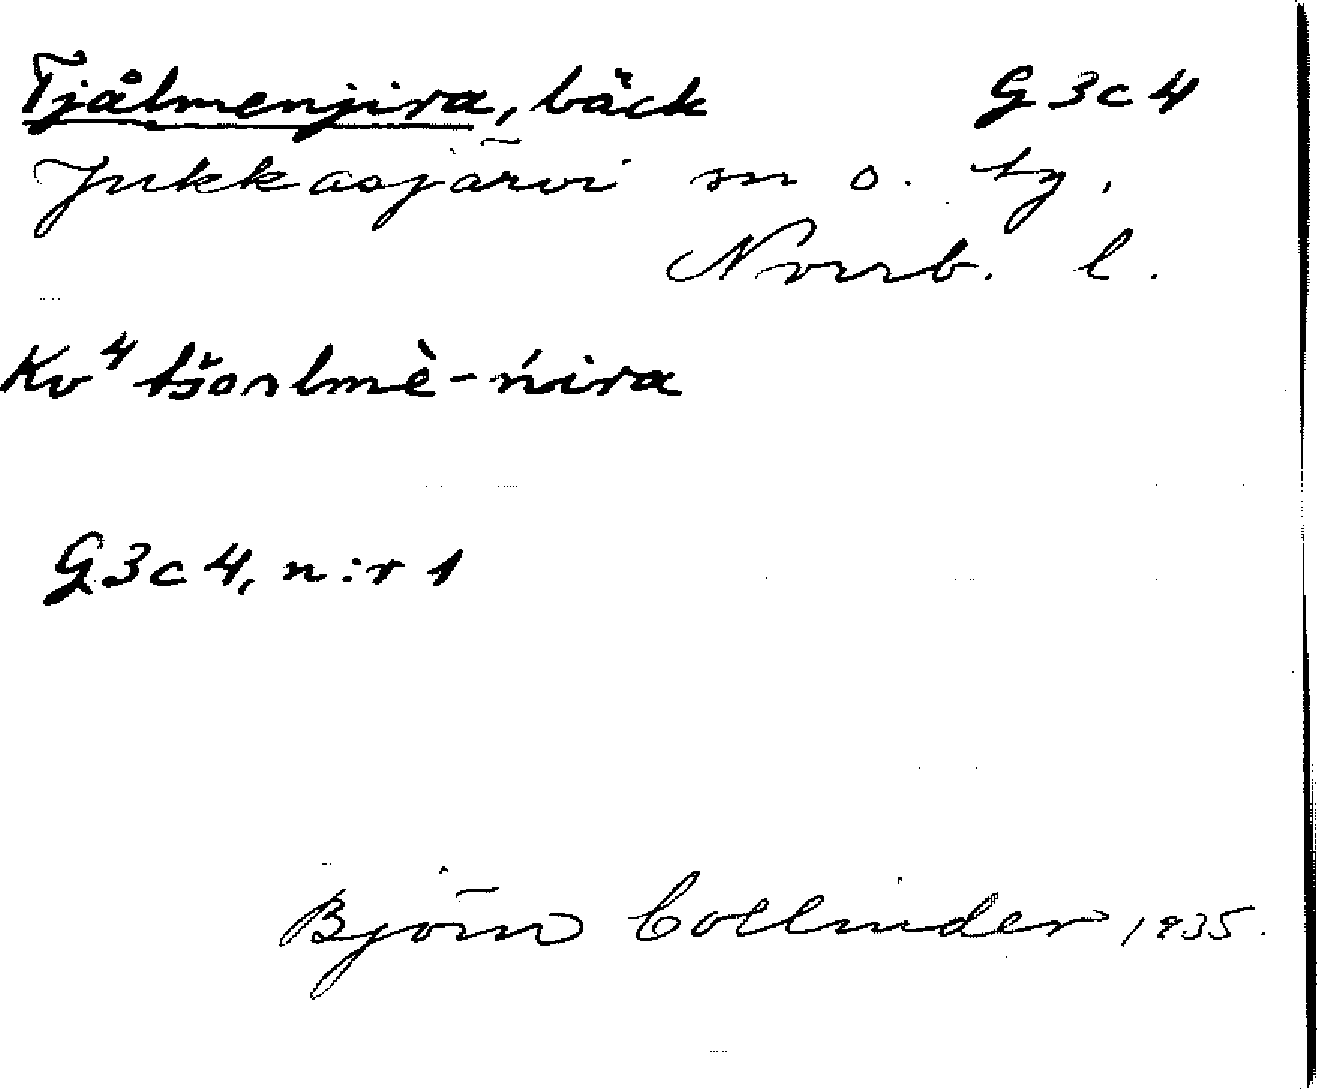 Tjålmenjira, bäck G3c4
Jukkasjärvi sn o. tg.
Norrb. l.
Kv⁴ tšoₐlmè-ńira
G3c4, n:r 1
Björn Collinder 1935.